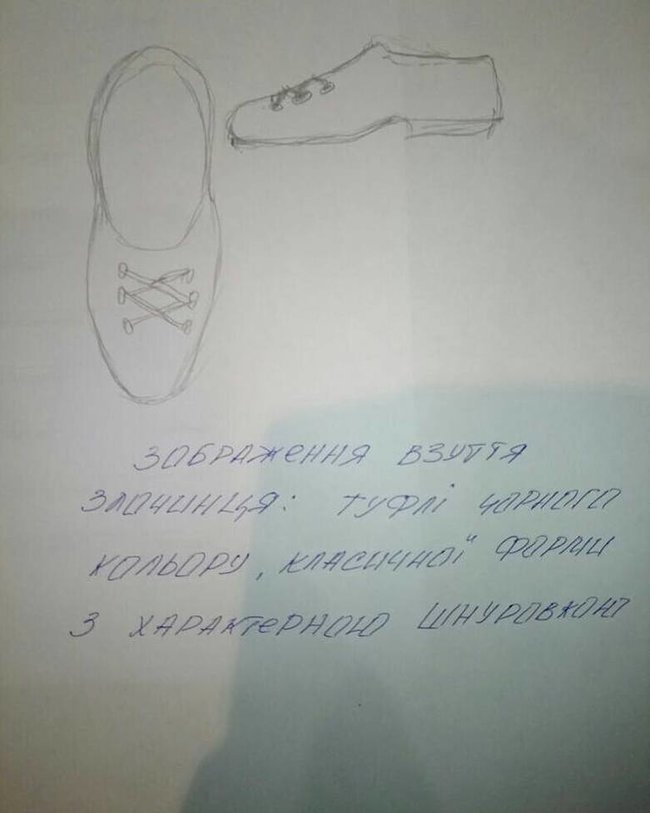 ЗОБРАЖЕННЯ ВЗУТТЯ
ЗЛОЧИНЦЯ: ТУФЛІ ЧОРНОГО
КОЛЬОРУ, КЛАСИЧНОЇ ФОРМИ
З ХАРАКТЕРНОЮ ШНУРОВКОЮ